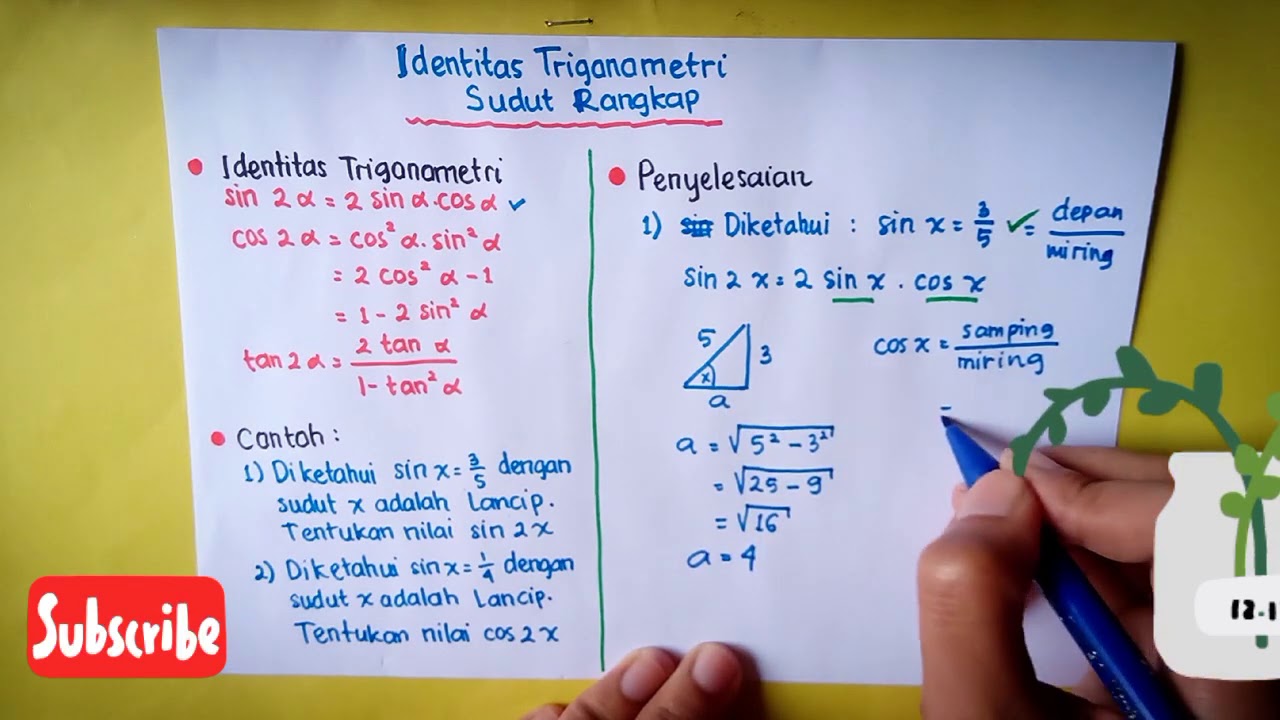 Identitas Trigonometri
Sudut Rangkap
• Identitas Trigonometri
sin 2α = 2 sin α . cos α ✓
cos 2α = cos² α . sin² α
= 2 cos² α - 1
= 1 - 2 sin² α
tan 2α = 2 tan α / 1 - tan² α
• Contoh :
1) Diketahui sin x = 3/5 dengan
sudut x adalah Lancip.
Tentukan nilai sin 2x
2) Diketahui sin x = 1/4 dengan
sudut x adalah Lancip.
Tentukan nilai cos 2x
• Penyelesaian
1) Diketahui : sin x = 3/5 ✓ = depan / miring
sin 2x = 2 sin x . cos x
5 3
x
a
cos x = samping / miring
=
a = √5² - 3²
= √25 - 9
= √16
a = 4
Subscribe
12.1